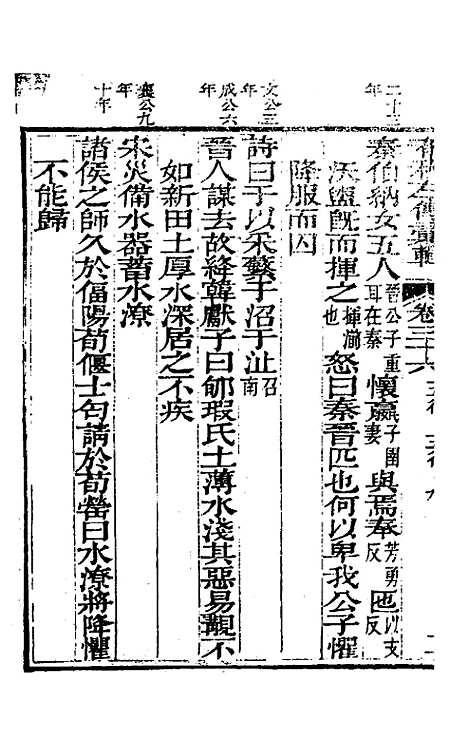 二十三年
秦伯納女五人晉公子重耳在秦懷嬴子圉妻與焉奉芳勇反匜以支反
沃盥旣而揮之揮湔也怒曰秦晉匹也何以卑我公子懼
降服而囚
文公三年
詩曰于以采蘩于沼于沚召南
成公六年
晉人謀去故絳韓獻子曰郇瑕氏土薄水淺其惡易覯不
如新田土厚水深居之不疾
襄公九年
宋災備水器蓄水潦
十年
諸侯之師久於偪陽荀偃士匄請於荀罃曰水潦將降懼
不能歸